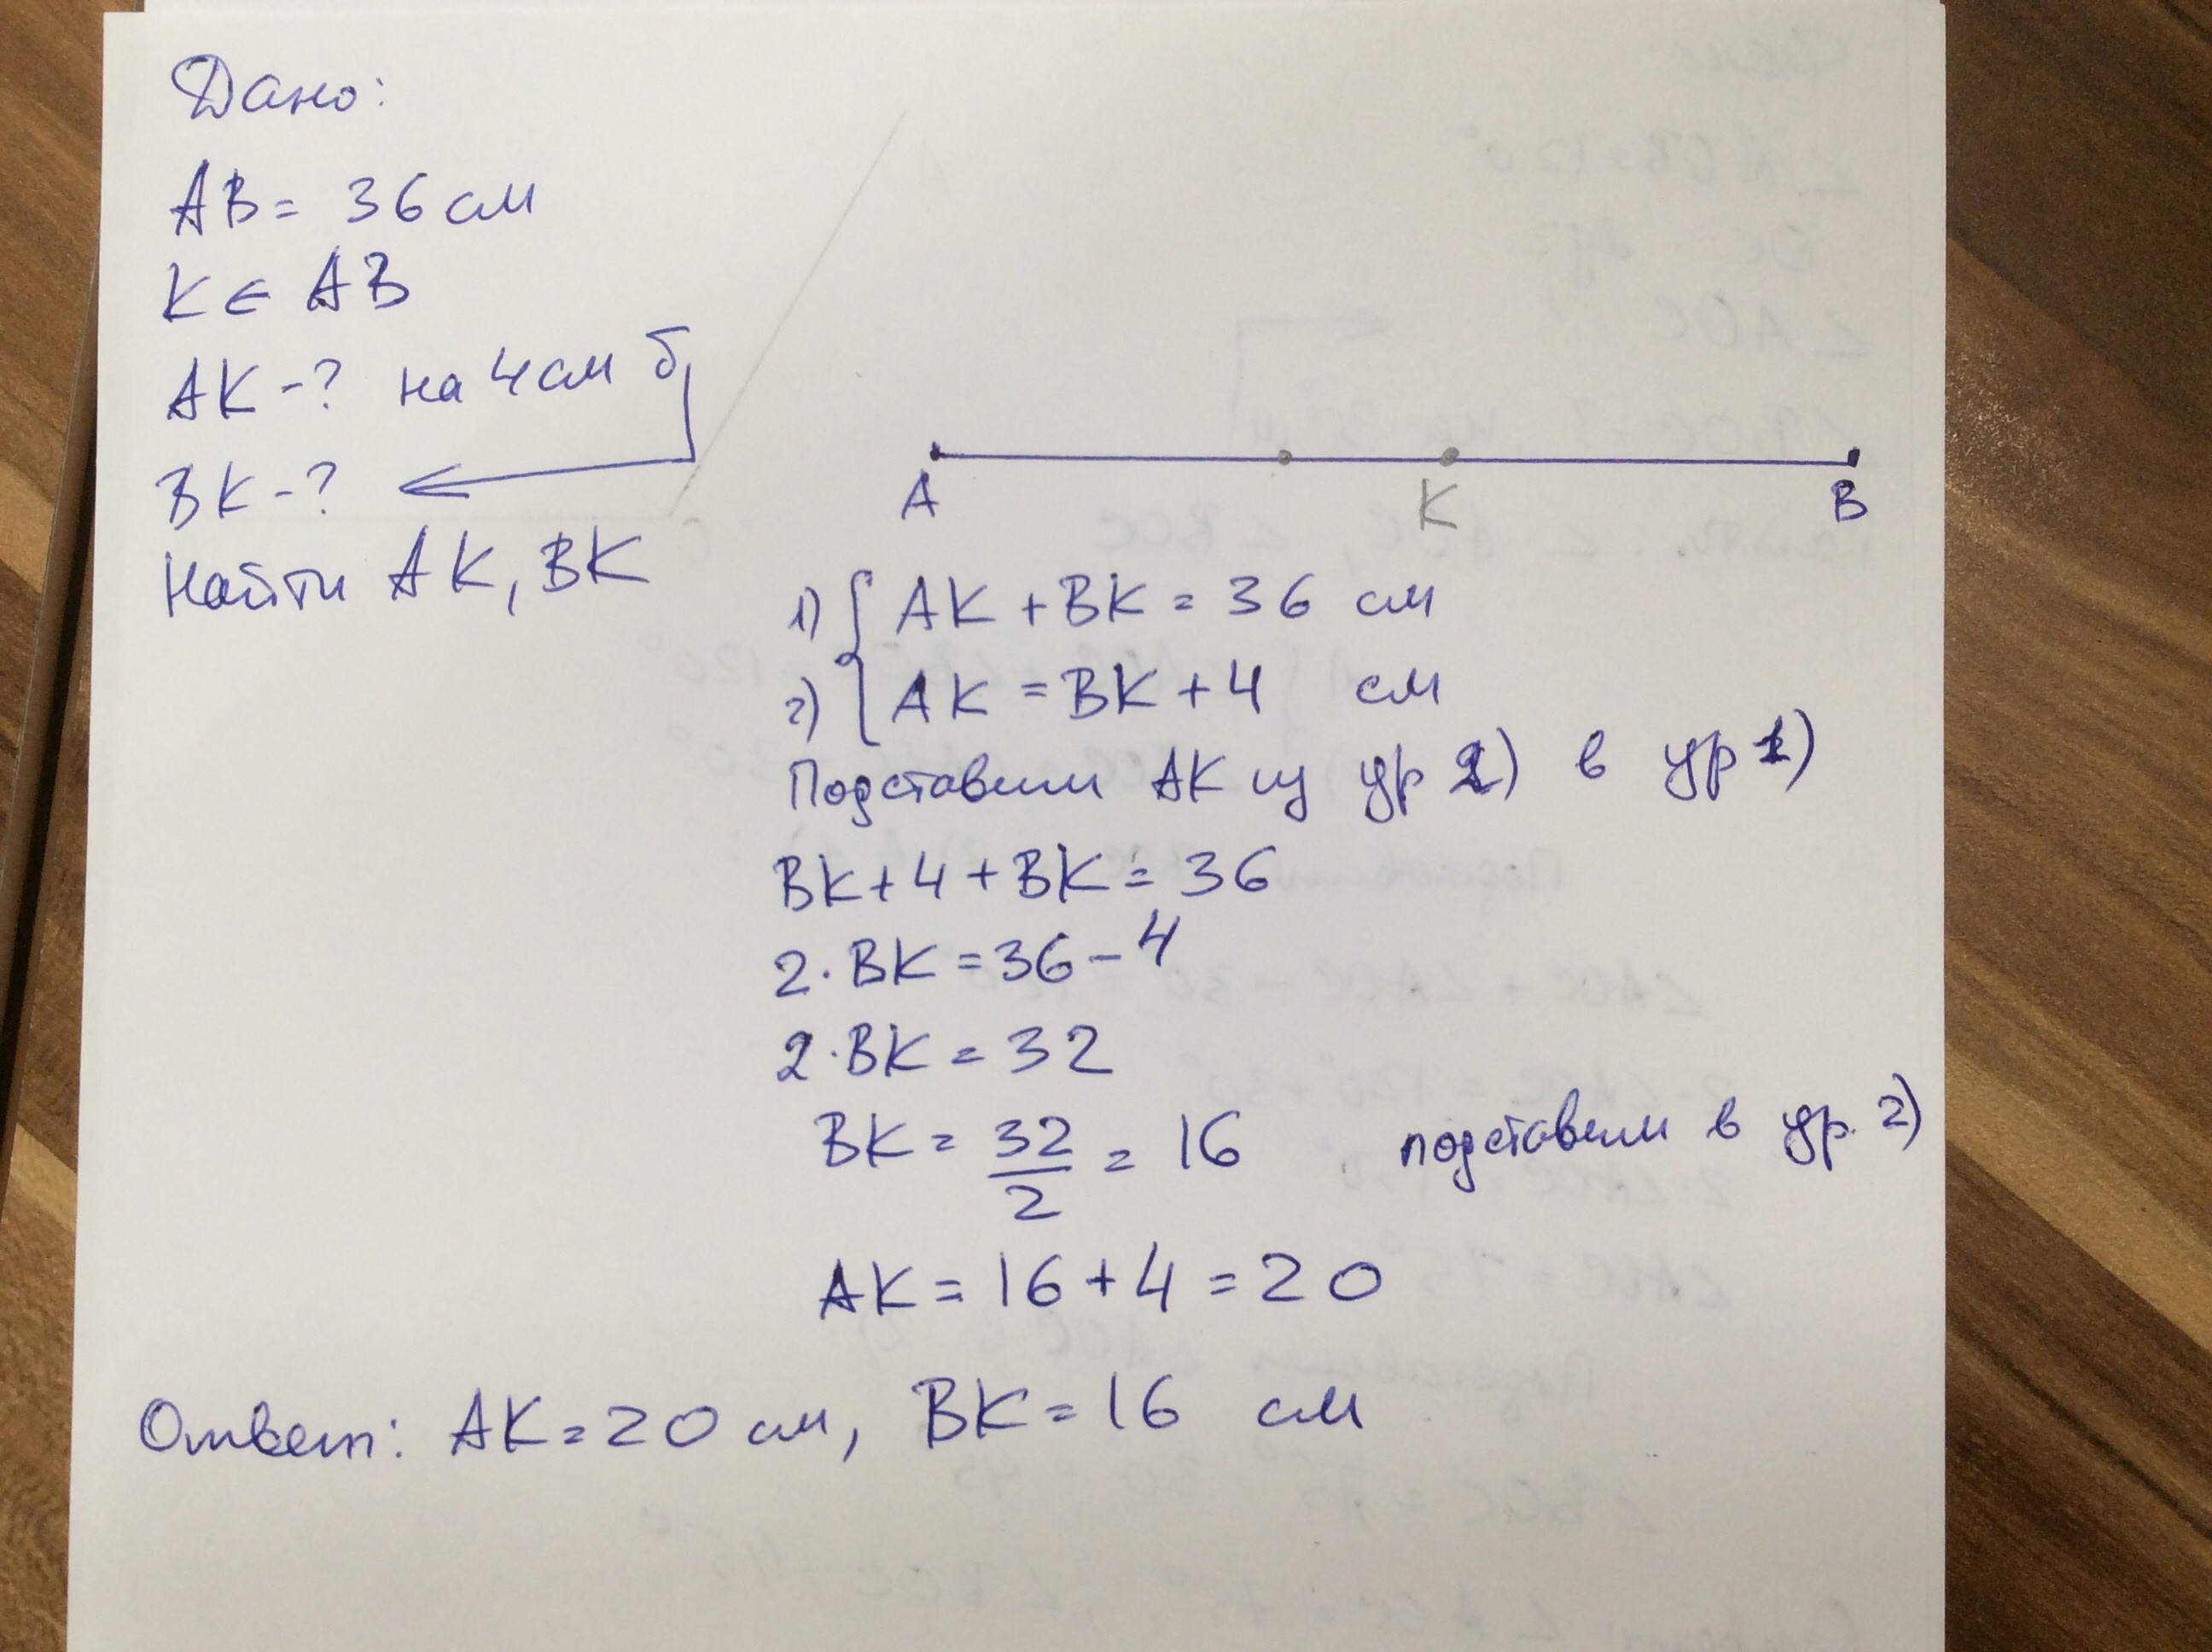 Дано:
AB = 36 см
K ∈ AB
AK - ? на 4 см б
BK - ?
Найти AK, BK
A K B
1) { AK + BK = 36 см
2) { AK = BK + 4 см
Подставим AK из ур 2) в ур 1)
BK + 4 + BK = 36
2 · BK = 36 - 4
2 · BK = 32
BK = 32/2 = 16 подставим в ур. 2)
AK = 16 + 4 = 20
Ответ: AK = 20 см, BK = 16 см